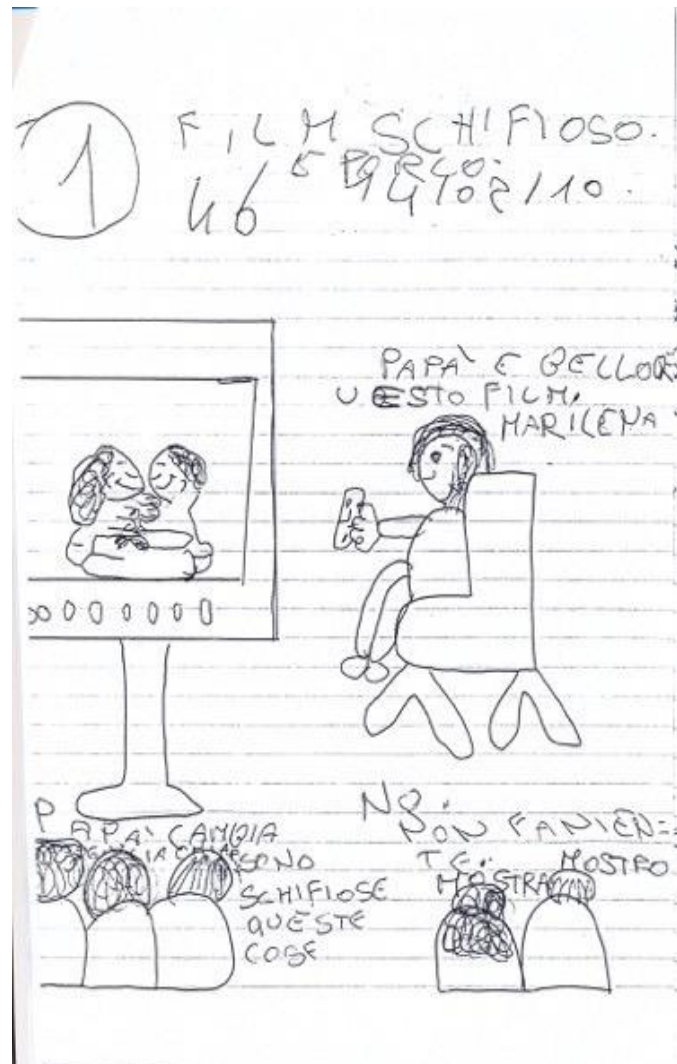 1
FILM SCHIFIOSO.
E PORCO.
PAPA' E BELLO Q
UESTO FILM,
MARILENA
PAPA' CAMBIA
SONO
SCHIFIOSE
QUESTE
COSE
NO.
NON FA NIEN=
TE.
MOSTRA
MOSTRO